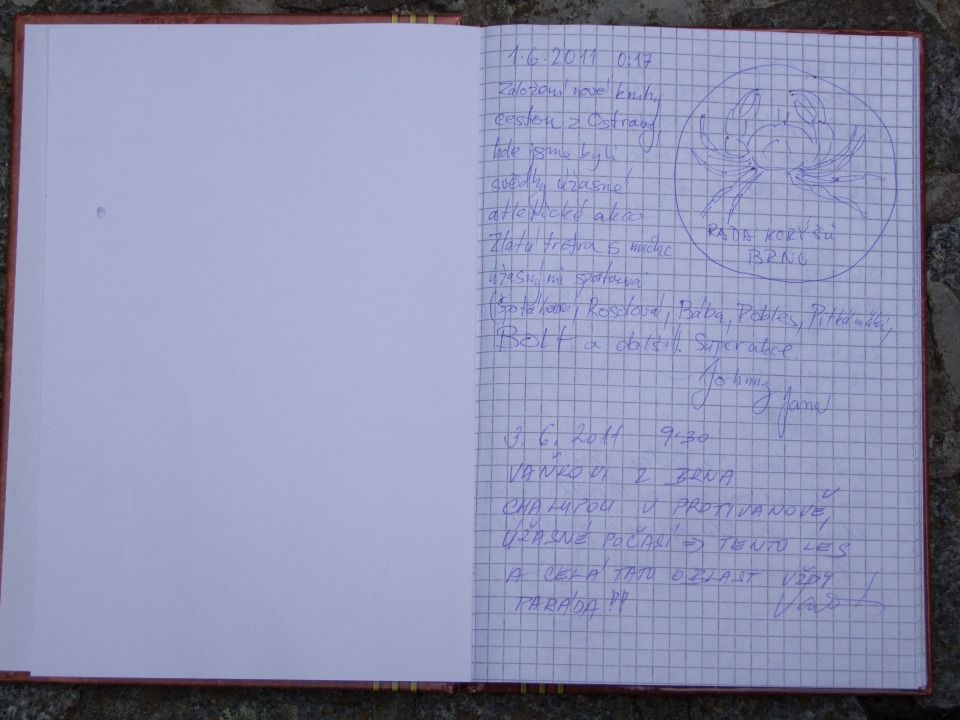 1.6.2011 0:17
Založení nové knihy
cestou z Ostravy,
kde jsme byli
svědky úžasné
atletické akce
Zlatá tretra s mnoha
úžasnými sportovci
(Špotáková, Rosolová, Bába, Robles, Pitkämäki,
Bolt a další). Super akce
Johnny
Jana
RADA KORÝŠŮ
BRNO
3.6.2011 9:30
VAŇKOVI Z BRNA
CHALUPOU V PROTIVANOVĚ,
ÚŽASNÉ POČASÍ => TENTO LES
A CELÁ TATO OBLAST VŽDY
PARÁDA!!